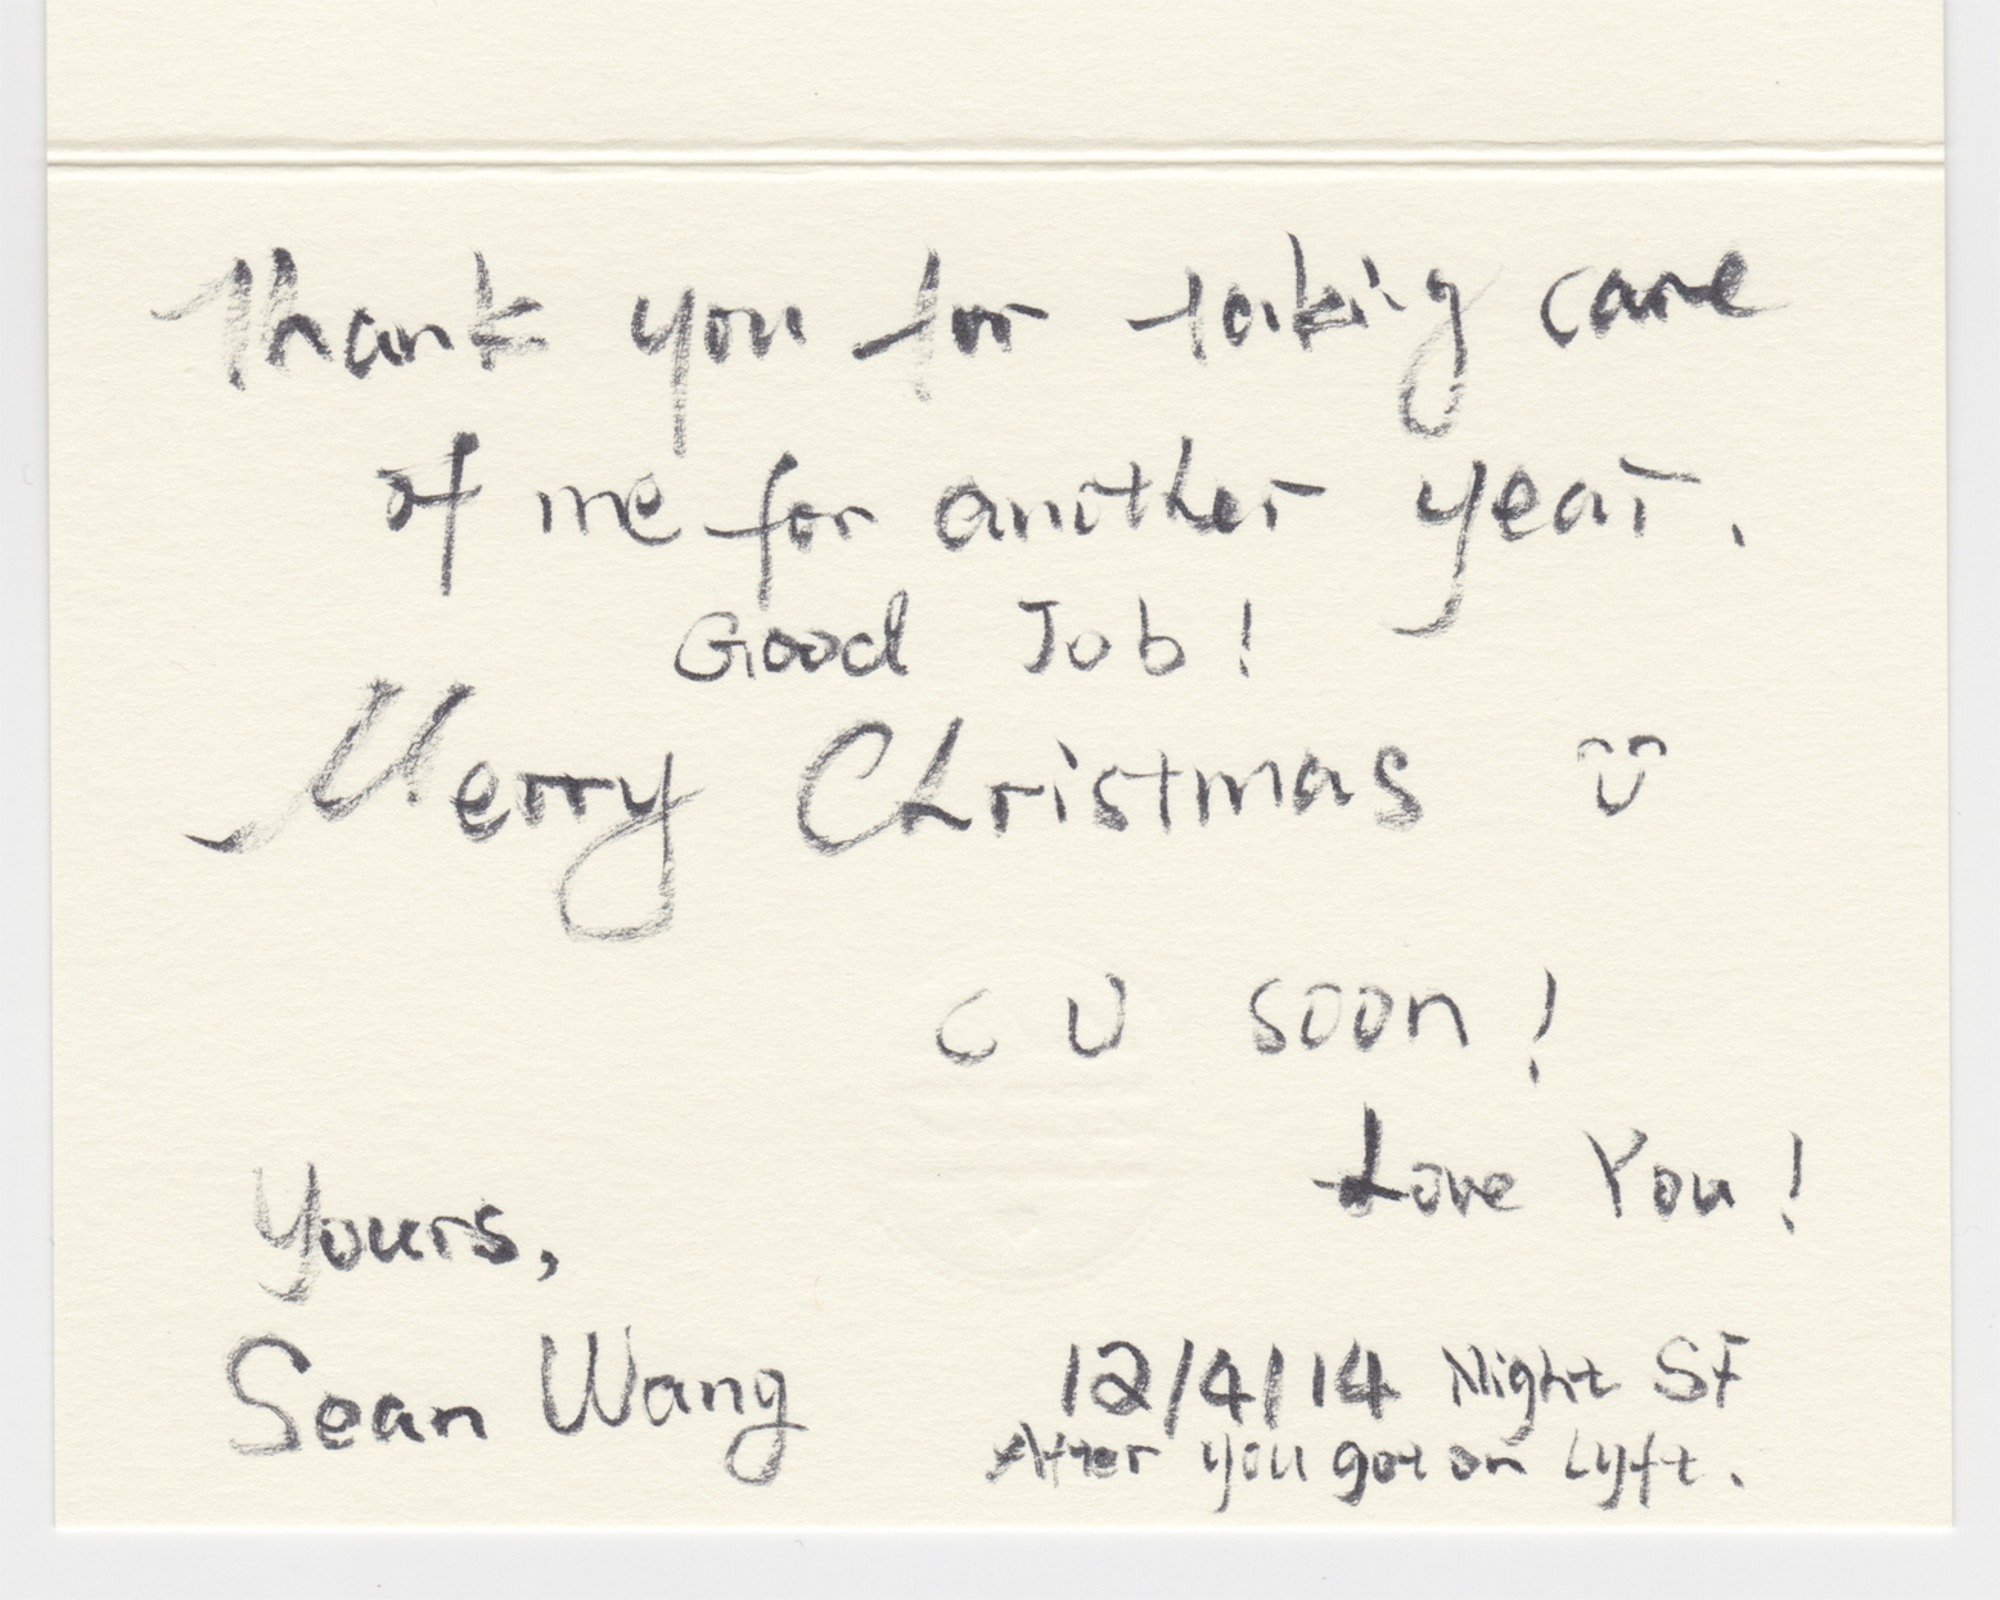 Thank you for taking care
of me for another year.
Good Job!
Merry Christmas
C U soon!
Love You!
Yours,
Sean Wang
12/4/14 Night SF
After you got on Lyft.